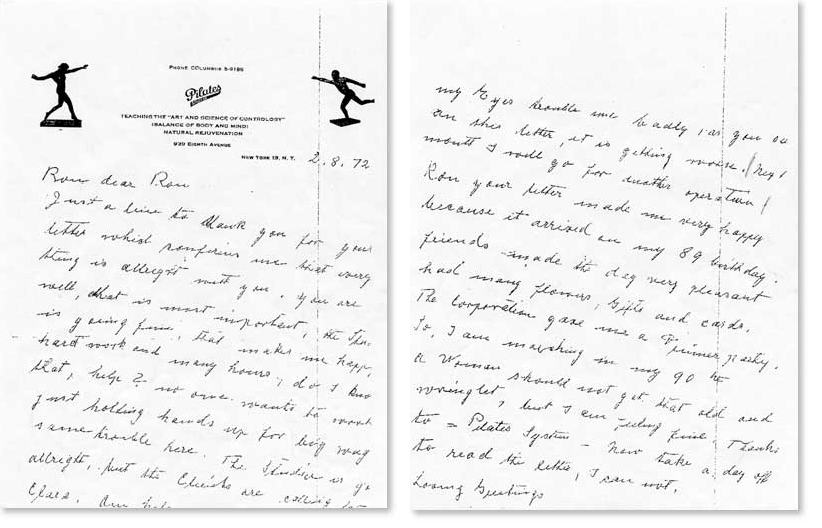 PHONE COLUMBUS 5-9195
Pilates
TEACHING THE "ART AND SCIENCE OF CONTROLOGY"
(BALANCE OF BODY AND MIND)
NATURAL REJUVENATION
939 EIGHTH AVENUE
NEW YORK 19, N. Y. 2.8.72
Ron dear Ron
Just a line to thank you for your
letter whist me that every
thing is allright with you. you are
well, that is most important, the Stu.
is going fine, that makes me happ,
hard work and many hours, do I know
that, help? no one wants to work
just holding hands up for big wag
same trouble here. The Studio is go
allright, but the Clients are calling for
Clara.
my Eyes trouble me badly, as you
on this letter, it is getting worse. (Next
month I will go for another operation)
Ron your letter made me very happy
because it arrived on my 89 birthday.
friends made the day very pleasant
had many flowers, Gifts and cards.
The Corporation gave me a Dinner party.
So, I am marching in my 90 th
a Woman should not get that old and
wringlet, but I am feeling fine, Thanks
to = Pilates System - Now take a day off
to read the letter, I can not.
Loving Greetings